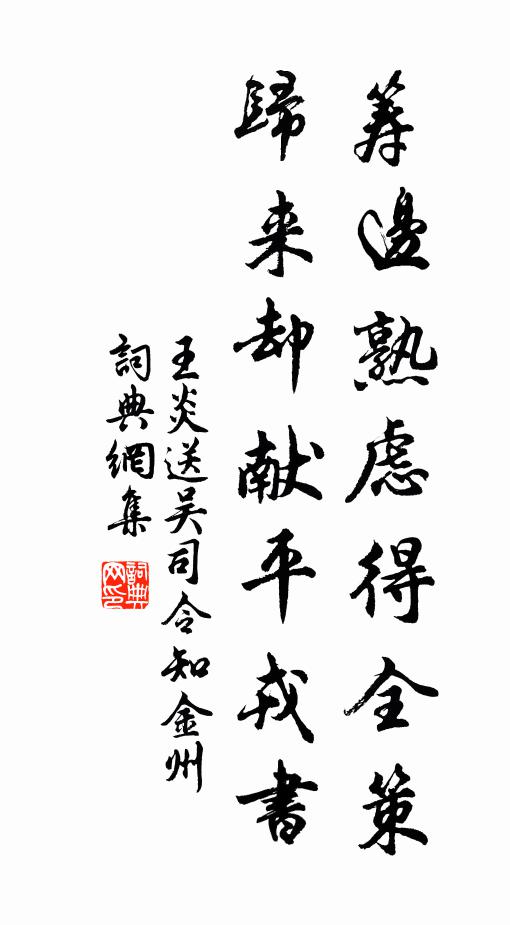 籌邊熟慮得全策
歸来却献平戎書
王炎送吴司令知金州
詞典網集
詞典
网印